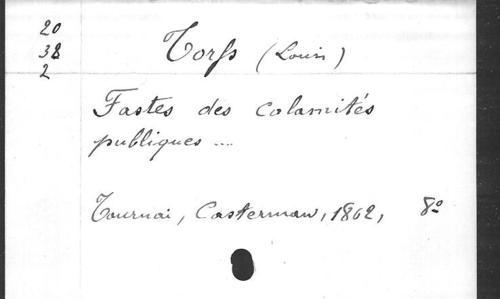 20
38
2
Torfs (Louis)
Fastes des calamités
publiques ....
Tournai, Casterman, 1862, 8°